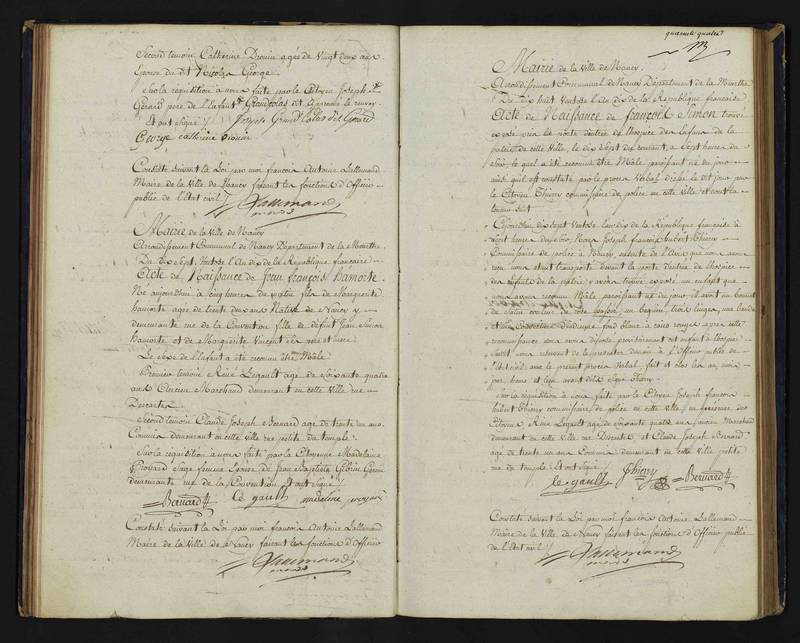 Second temoin Catherine Drouin agée de Vingt deux ans
Epouse du dit Nicolas George.
Sur la requisition a nous faite par le Citoyen Joseph
Gerard pere de l'Enfant
Et ont signé
George catherine Drouin
Constaté suivant la Loi par moi françois Antoine Lallemand
Maire de la Ville de Nancy faisant les fonctions d'Officier
public de l'Etat civil
Lallemand
Mairie de la Ville de Nancy
Arrondissement Communal de Nancy Département de la Meurthe
Du dix Sept Ventose l'An dix de la République française
Acte de Naissance de Jean françois hamorte.
Né aujourd'hui a cinq heures du matin fils de Marguerite
hamorte agée de trente deux ans Native de Nancy y
demeurante rue de la Convention fille de défunt Jean Simon
hamorte et de Marguerite Vincent
Le Sexe de l'Enfant a été reconnu être Mâle.
Premier temoin René Legault agé de soixante quatre
ans Ancien Marchand demeurant en cette Ville rue
Descartes
Second temoin Claude Joseph Bernard agé de trente un ans
Commis demeurant en cette Ville rue petite du temple.
Sur la requisition a nous faite par la Citoyenne Madelaine
Sage femme Epouse de Jean Baptiste
demeurante rue de la Convention et ont signé
Bernard Le gault madeleine
Constaté suivant la Loi par moi françois Antoine Lallemand
Maire de la Ville de Nancy faisant les fonctions d'Officier
Lallemand
quarante quatre
Mairie de la Ville de Nancy.
Arrondissement Communal de Nancy Département de la Meurthe
Du dix huit Ventose l'An dix de la République française
Acte de Naissance de françois Simon trouvé
exposé vers la porte d'entrée de l'hospice des Enfans de la
patrie de cette Ville, le dix Sept du courant, a Sept heures du
Soir, lequel a été reconnu être Mâle paroissant né du jour
ainsi qu'il est constaté par le procès Verbal dressé le dit jour par
le Citoyen Thiery commissaire de police en cette Ville et dont la
teneur suit
Cejourd'hui dix sept Ventose l'an dix de la République française à
sept heures du Soir, Nous Joseph françois hubert Thiery
Commissaire de police à Nancy, ensuite de l'Avis que nous avons
reçu nous étant transporté devant la porte d'entrée de l'hospice
des enfants de la patrie y avons trouvé exposé un enfant que
nous avons reconnu Mâle paroissant né du jour, il avoit un bonnet
de un beguin, trois langes, une bande
et une couverture fond blanc a rouges après cette
reconnoissance nous avons déposé provisoirement cet enfant à l'hospice
l'Officier public de
l'Etat civil le présent procès Verbal, fait et clos les an, mois
jour, heure et lieu avant dits signé Thiery.
Sur la requisition à nous faite par le Citoyen Joseph francois
hubert Thiery commissaire de police en cette Ville, en présence des
Citoyens René Legault agé de soixante quatre ans Ancien Marchand
demeurant en cette Ville rue Descartes et Claude Joseph Bernard
agé de trente un ans Commis demeurant en cette Ville petite
rue du temple. Et ont signé
le gault Thiery Bernard
Constaté suivant la Loi par moi françois Antoine Lallemand
Maire de la Ville de Nancy faisant les fonctions d'Officier public
de l'Etat civil
Lallemand